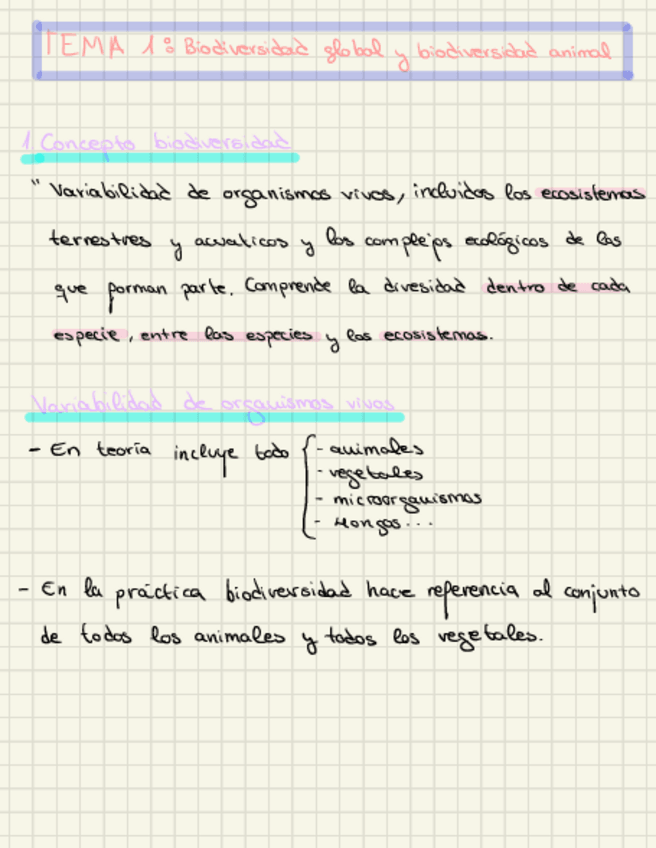 TEMA 1: Biodiversidad global y biodiversidad animal
1. Concepto biodiversidad
" Variabilidad de organismos vivos, incluidos los ecosistemas
terrestres y acuaticos y los complejos ecológicos de los
que forman parte. Comprende la divesidad dentro de cada
especie, entre las especies y los ecosistemas.
Variabilidad de organismos vivos
- En teoría incluye todo { - animales
- vegetales
- microorganismos
- Hongos...
- En la práctica biodiversidad hace referencia al conjunto
de todos los animales y todos los vegetales.